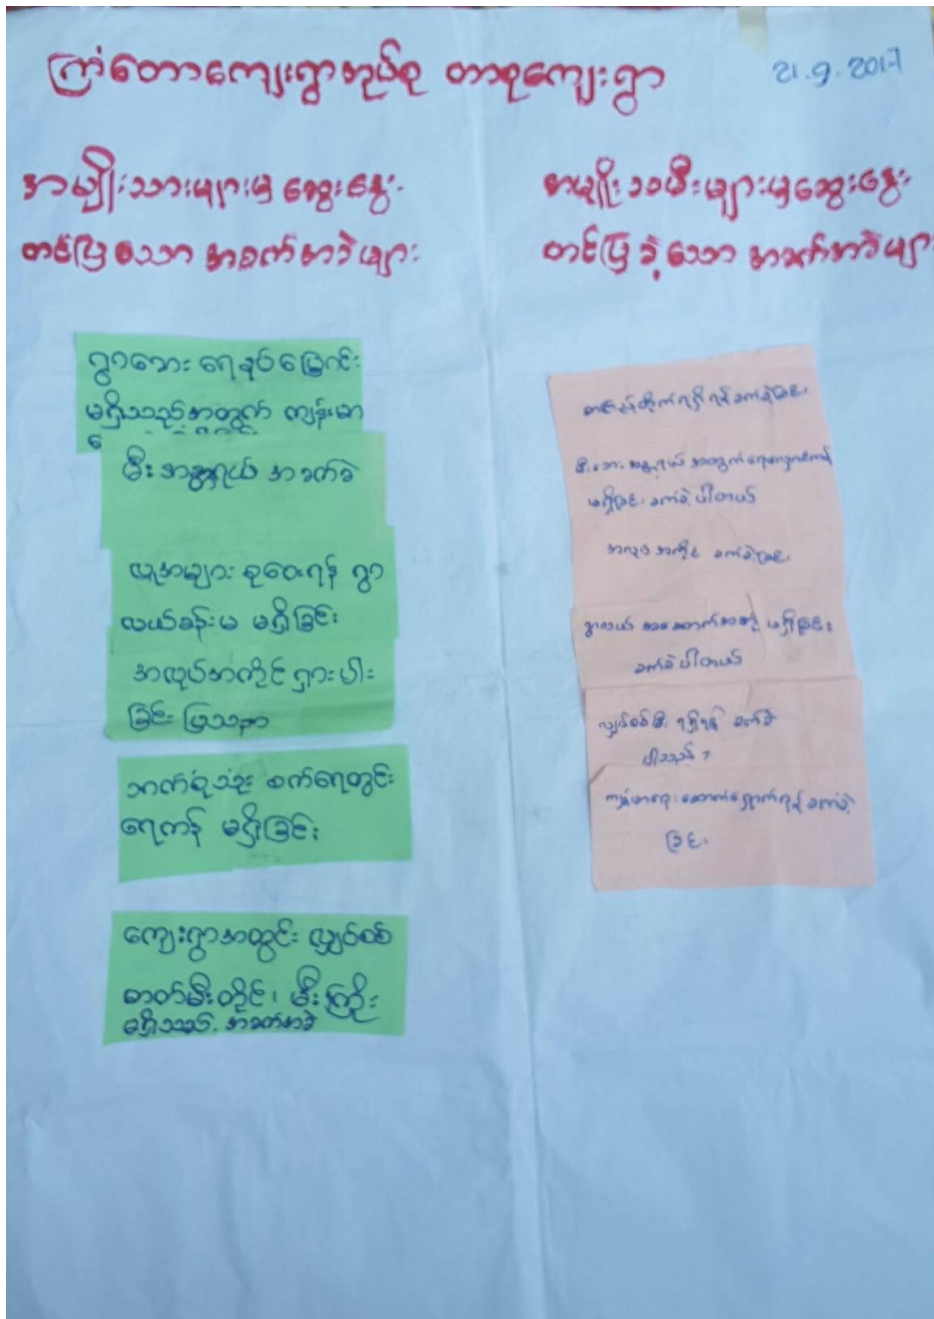 ကြံတောကျေးရွာအုပ်စု တာစုကျေးရွာ
21.9.2017
အမျိုးသားများမှ ဆွေးနွေး
တင်ပြသော အခက်အခဲများ
ရွာဘေး ရေနုပ်မြောင်း
မရှိသည့်အတွက် ကျန်းမာ
မီးအန္တရာယ် အခက်ခဲ
လူအများ စုဝေးရန် ရွာ
လယ်ခန်းမ မရှိခြင်း
အလုပ်အကိုင် ရှားပါး
ခြင်း ပြသနာ
ဘက်စုံသုံး စက်ရေတွင်း
ရေကန် မရှိခြင်း
ကျေးရွာအတွင်း လျှပ်စစ်
ဓာတ်မီးတိုင်၊ မီးကြိုး
မရှိသည့် အခက်အခဲ
အမျိုးသမီးများမှဆွေးနွေး
တင်ပြခဲ့သော အခက်အခဲများ
မီးဘေးအန္တရာယ် အတွက်
မရှိခြင်း ခက်ခဲ့ပါတယ်
အလုပ်အကိုင် ခက်ခဲခြင်း
ရွာလယ် အဆောက်အအုံ မရှိခြင်း
ခက်ခဲပါတယ်
လျှပ်စစ်မီး ရရှိရန် ခက်ခဲ
ပါသည်?
ကျန်းမာရေးစောင့်ရှောက်ရန် ခက်ခဲ့
ခြင်း